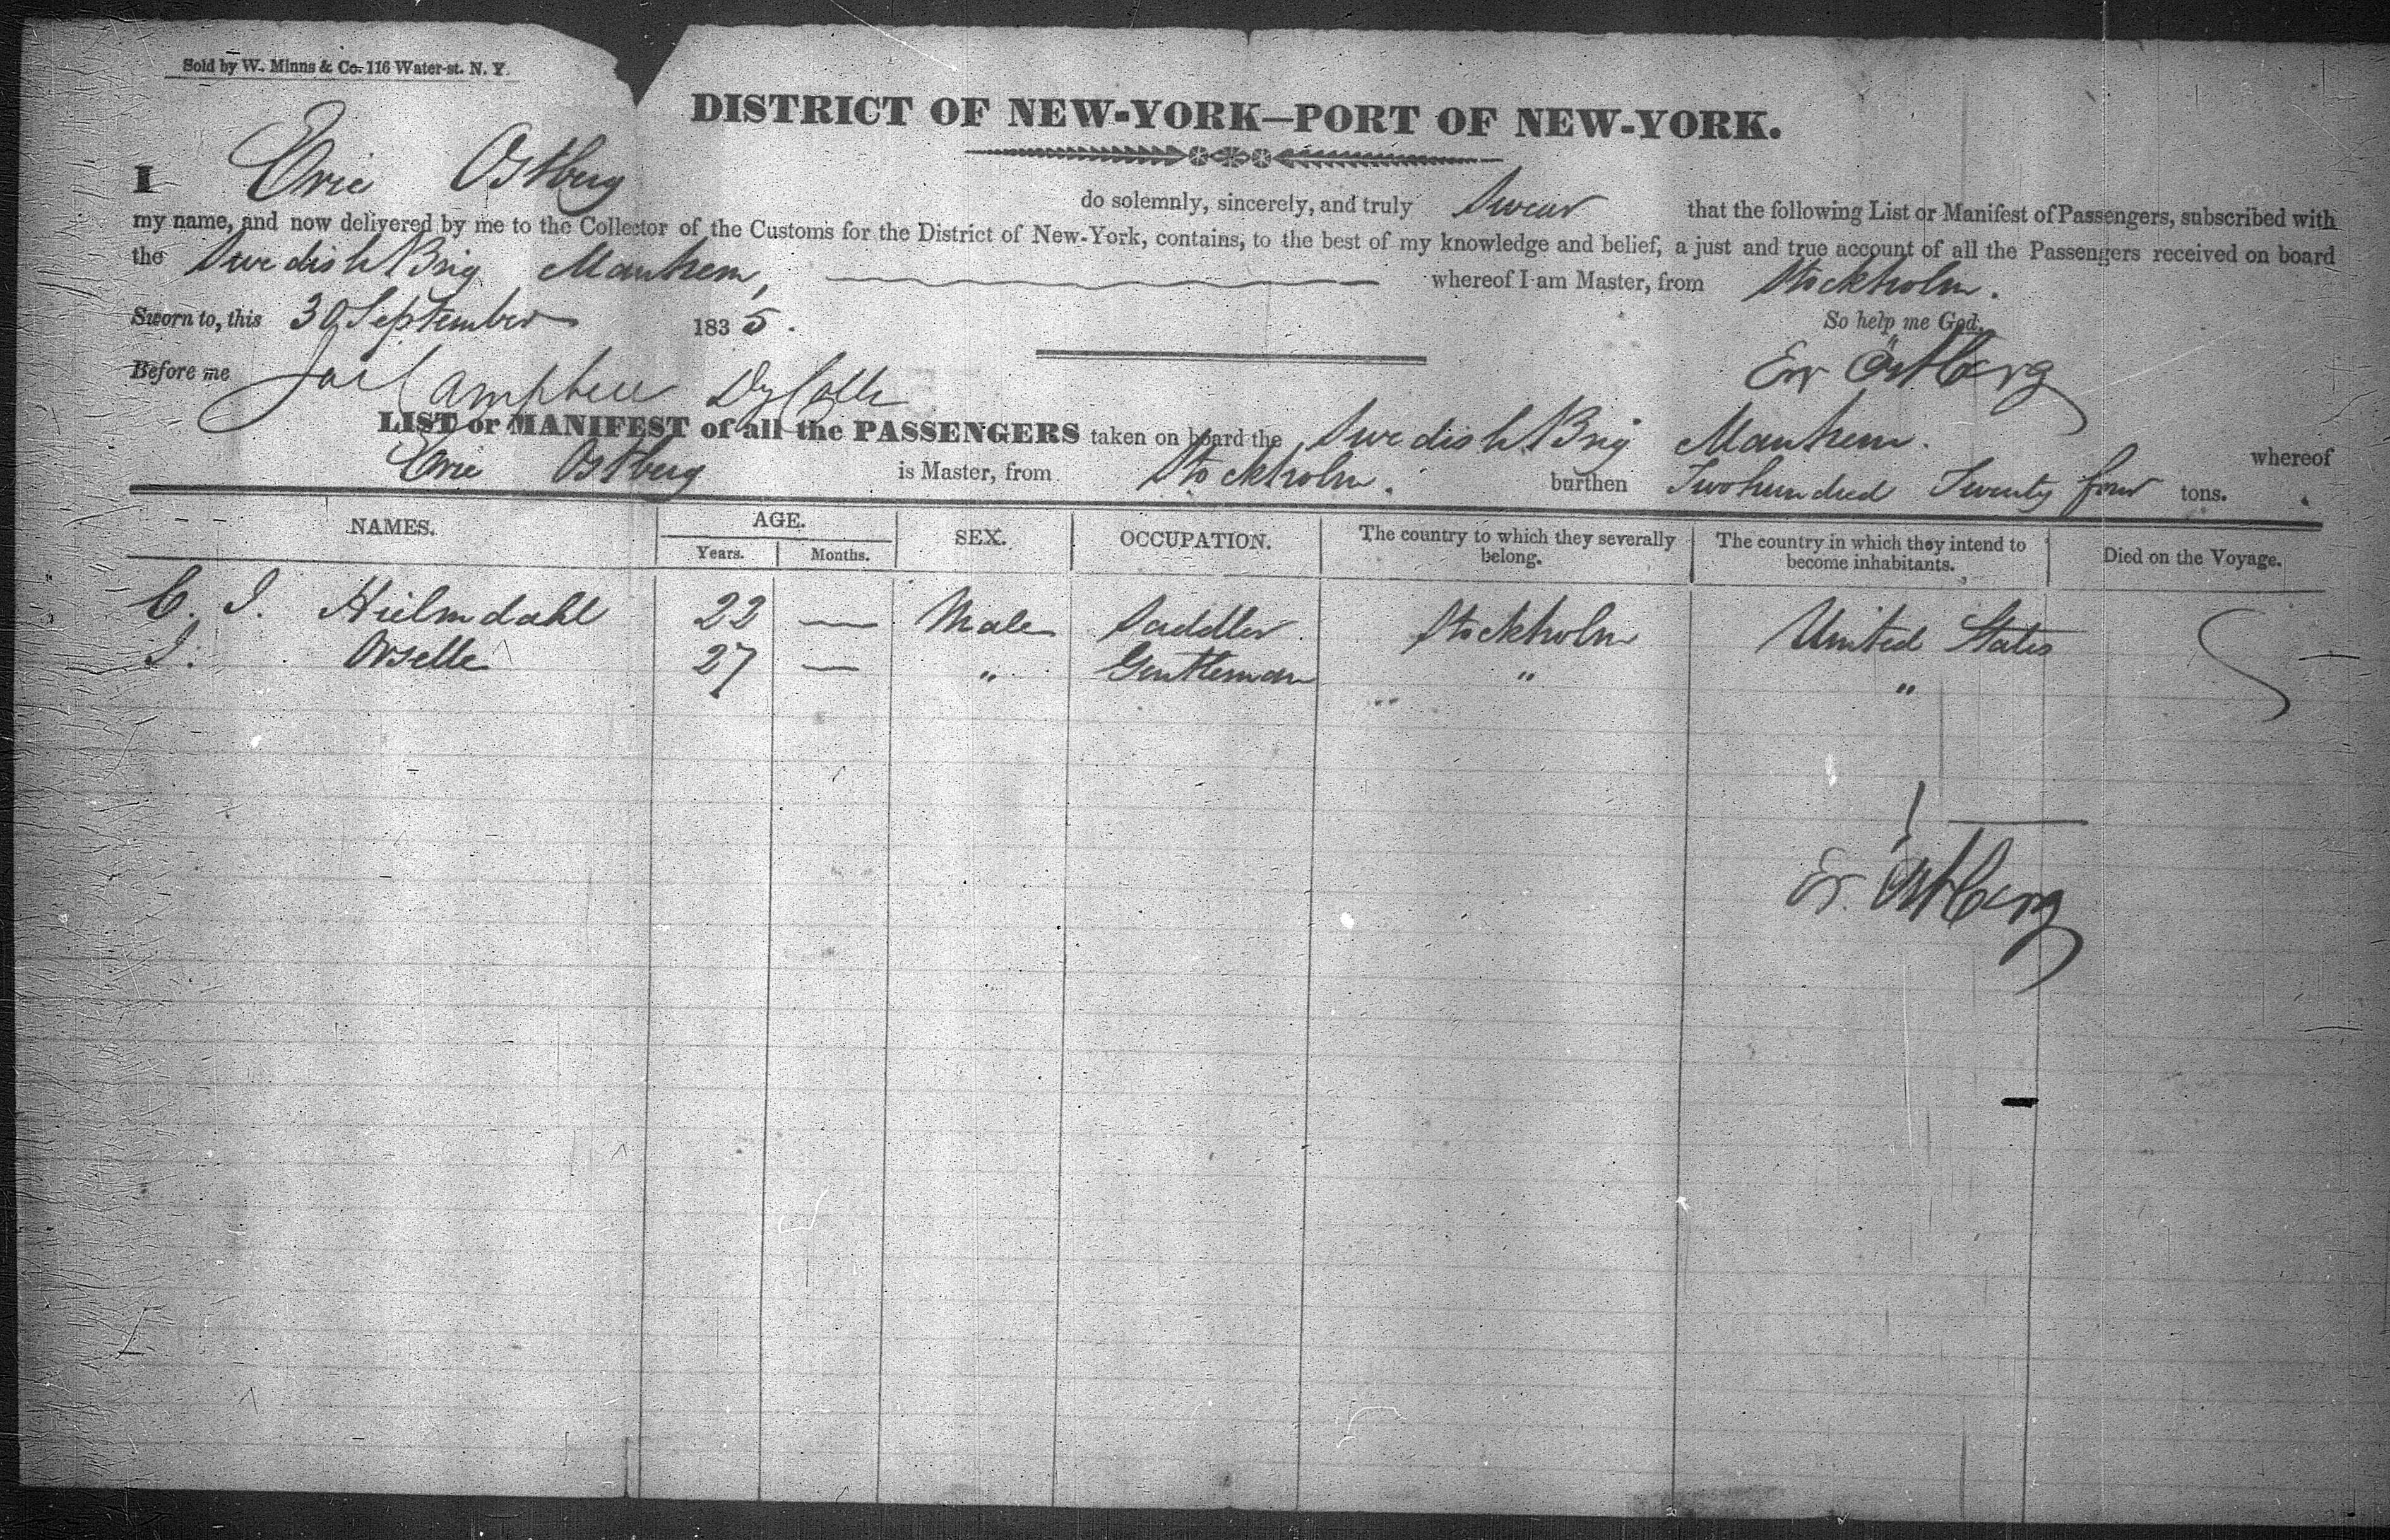 Sold by W. Minns & Co. 116 Water-st. N. Y.
DISTRICT OF NEW-YORK—PORT OF NEW-YORK.
I Eric Ostberg do solemnly, sincerely, and truly Swear that the following List or Manifest of Passengers, subscribed with
my name, and now delivered by me to the Collector of the Customs for the District of New-York, contains, to the best of my knowledge and belief, a just and true account of all the Passengers received on board
the Swedish Brig Manhem, whereof I am Master, from Stockholm.
Sworn to, this 30 September 1835. So help me God.
Before me Campbell Dy Colle Er Östberg
LIST or MANIFEST of all the PASSENGERS taken on board the Swedish Brig Manhem. whereof
Eric Ostberg is Master, from Stockholm. burthen Two hundred Twenty four tons.
NAMES. AGE. SEX. OCCUPATION. The country to which they severally belong. The country in which they intend to become inhabitants. Died on the Voyage.
Years. Months.
C. I. Hielmdahl 22 — Male Saddler Stockholm United States
I. Orselle 27 — " Gentleman " "
Er. Östberg